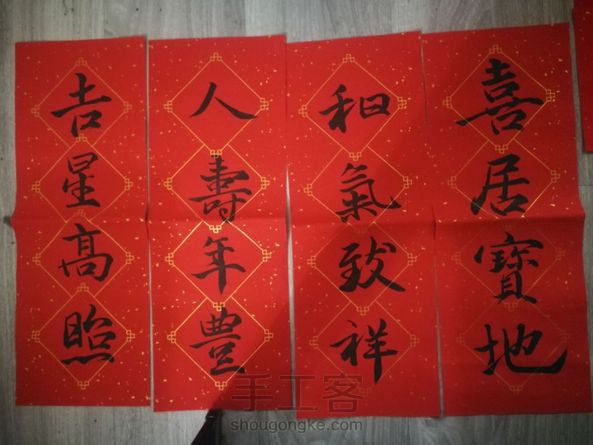 喜居寶地
和氣致祥
人壽年豊
吉星高照
手工客
shougongke.com